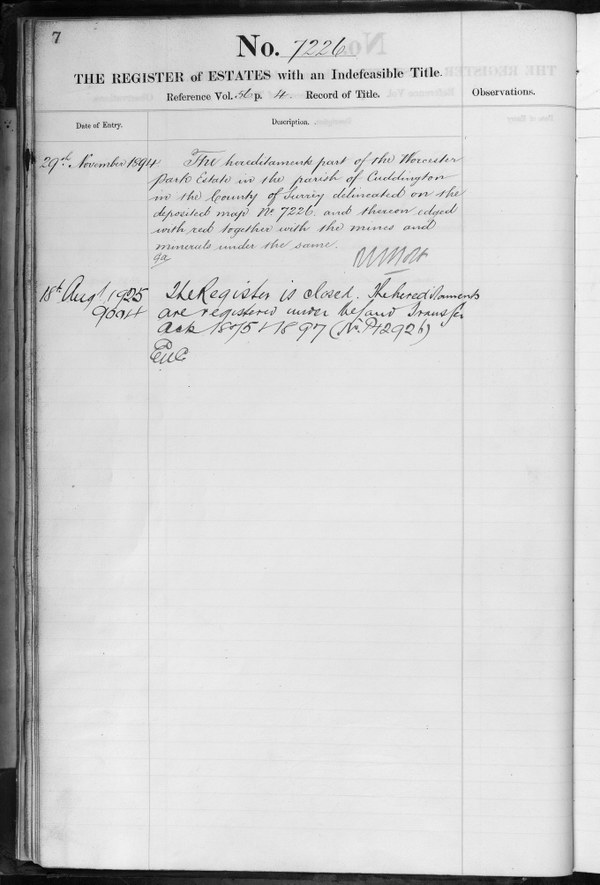 7
No. 7226
THE REGISTER of ESTATES with an Indefeasible Title.
Reference Vol. 56 p. 4 Record of Title.
Observations.
Date of Entry.
Description.
29th November 1894
The hereditaments part of the Worcester
Park Estate in the parish of Cuddington
in the County of Surrey delineated on the
deposited map No 7226 and thereon edged
with red together with the mines and
minerals under the same.
18th Augt 1925
The Register is closed. The hereditaments
are registered under the Land Transfer
Acts 1875 & 1897 (No. P42926)